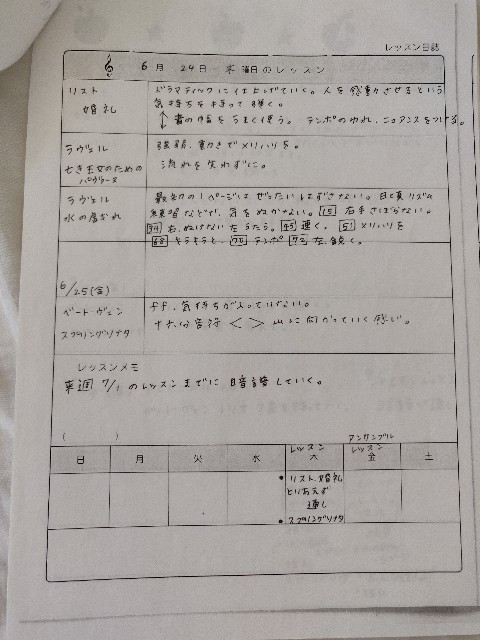 レッスン日誌
6月 24日 木曜日のレッスン
リスト
婚礼
ドラマティックに仕上げていく。人を感動させるという
気持ちを持って弾く。
音の幅をうまく使う。テンポのゆれ、ニュアンスをつける。
ラヴェル
亡き王女のための
パヴァーヌ
強弱、動きでメリハリを。
流れを失わずに。
ラヴェル
水の戯れ
最初の1ページはぜったいはずさない。日々リズム
練習などで、気をぬかない。15 右手さぼらない。
右、ぬけない 左うたう。45 速く。51 メリハリを
68 そうそうと、70 テンポ 72 左、鋭く。
6/25(金)
ベートーヴェン
スプリングソナタ
ff、気持ちが入っていけない。
十六分音符 < > 山に向かっていく感じ。
レッスンメモ
来週 7/1 のレッスンまでに 暗譜していく。
( )
アンサンブル
レッスン レッスン
日 月 火 水 木 金 土
・リスト、婚礼
とりあえず
通し
・スプリングソナタ